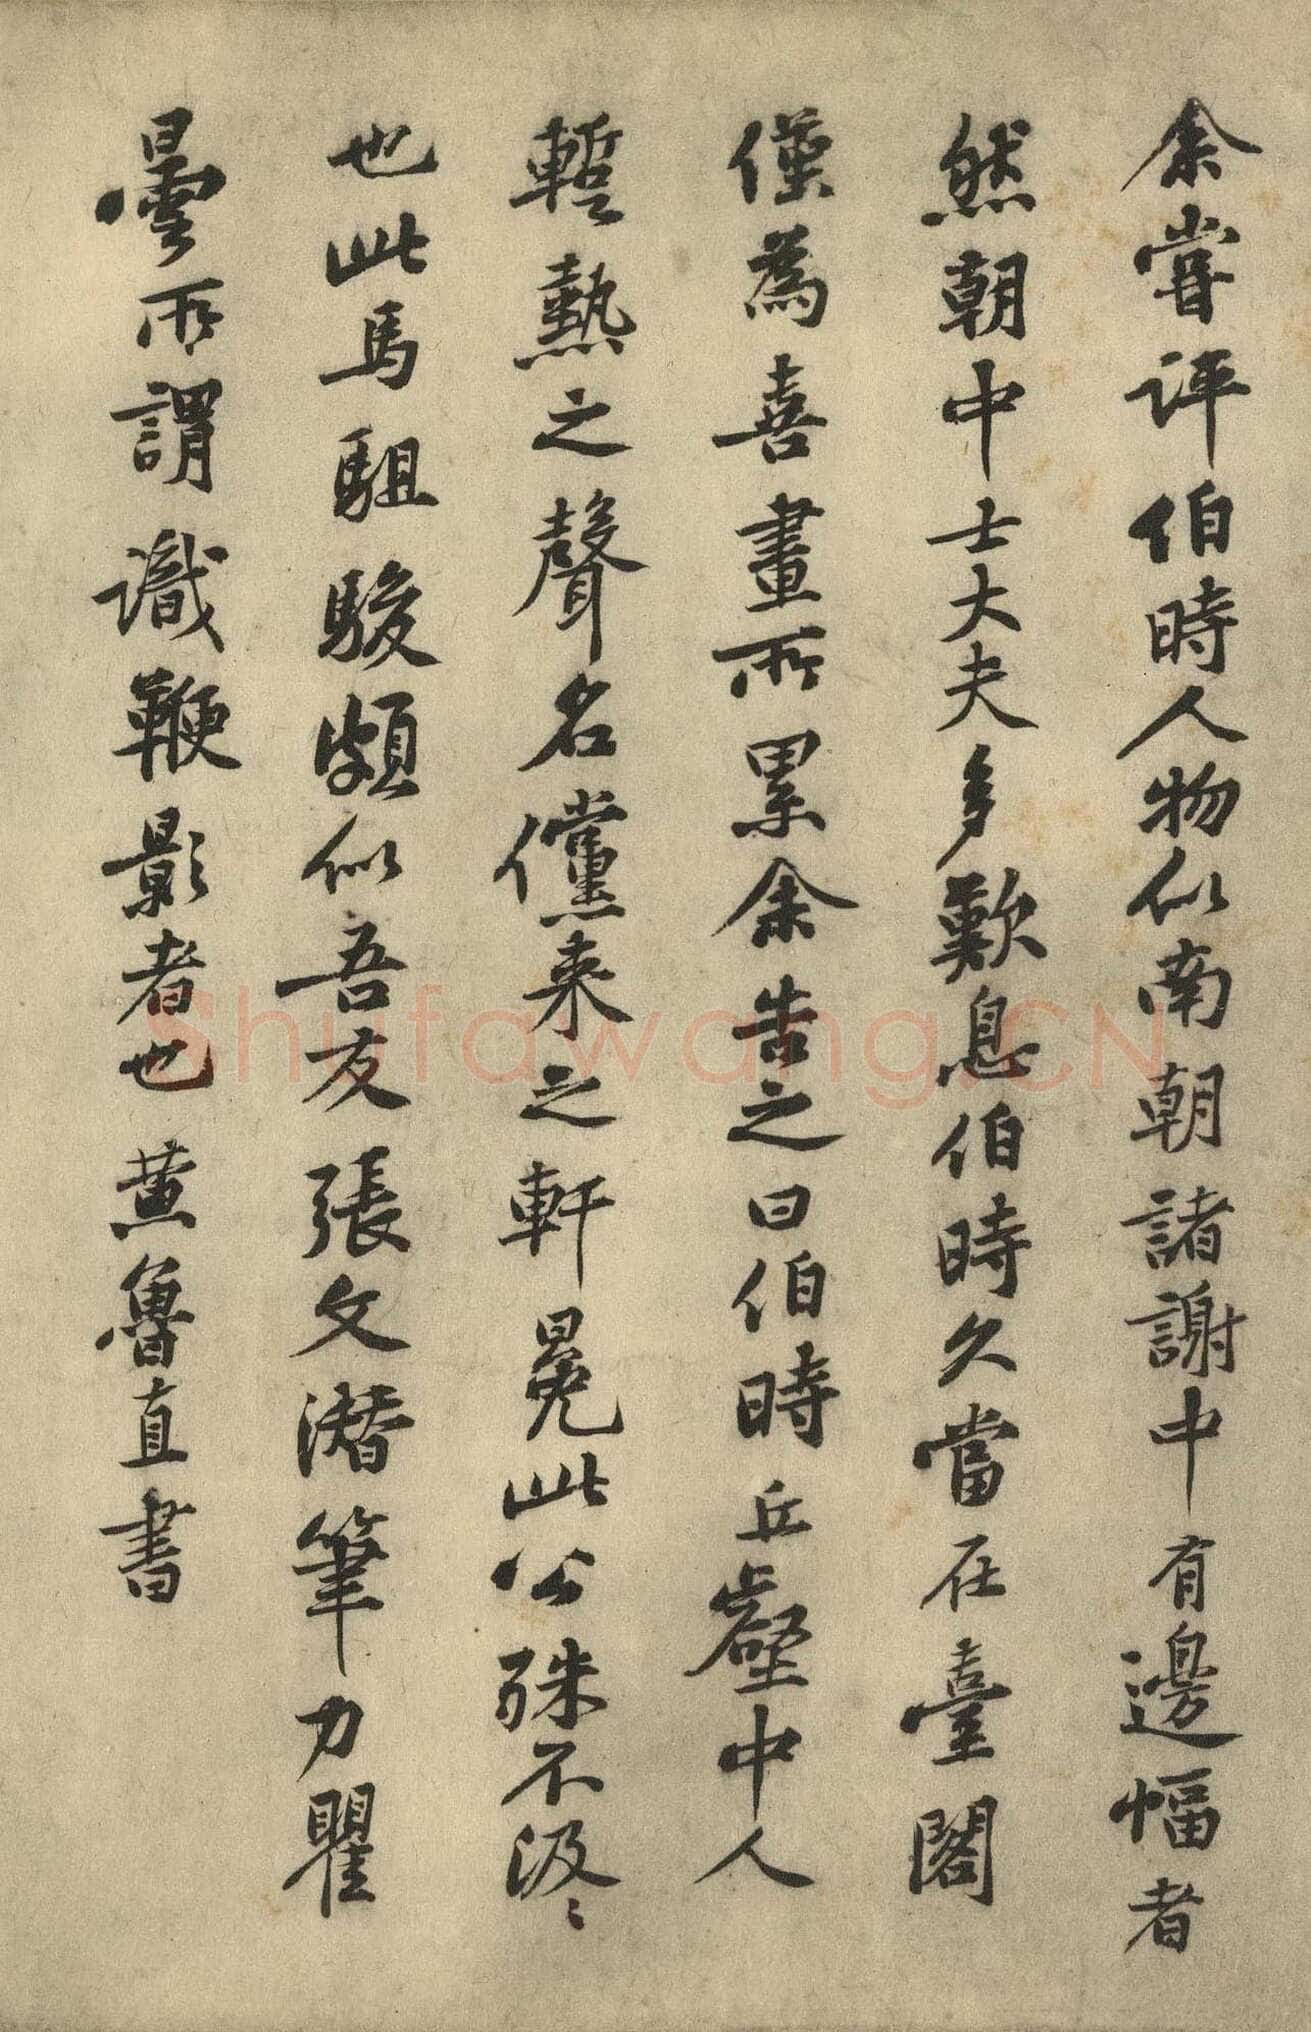 余嘗評伯時人物似南朝諸謝中有邊幅者
然朝中士大夫多歎息伯時久當在臺閣
僅為喜畫所累余告之曰伯時丘壑中人
暫熱之聲名儻来之軒冕此公殊不汲汲
也此馬駔駿頗似吾友張文潜筆力瞿
曇所謂識鞭影者也 黄魯直書
Shufawang.CN